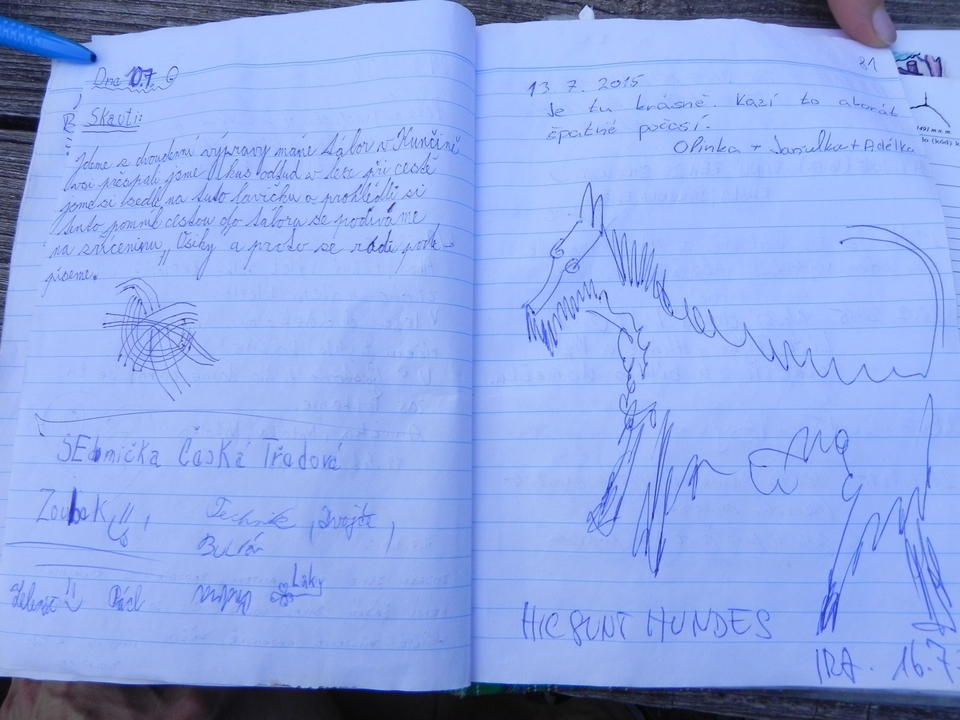 Dne 10.7.
Skauti:
Jdeme z dvoudenní výpravy máme tábor v Kunčině
vsi přespali jsme kus odsud v lese při cestě
jsme si sedli na tuto lavičku a prohlédli si
tento pomník cestou do tábora se podíváme
na zříceninu Ošíky a proto se rádi pode-
píšeme.
SEdmička Česká Třebová
Zoubek,
Technik, Dvojte,
Bulvár
Pácl
Láky
81
13. 7. 2015
Je tu krásně. Kazí to akorát
špatné počasí.
Olinka + Jarulka + Adélka
HIC SUNT HUNDES
IRA. 16.7